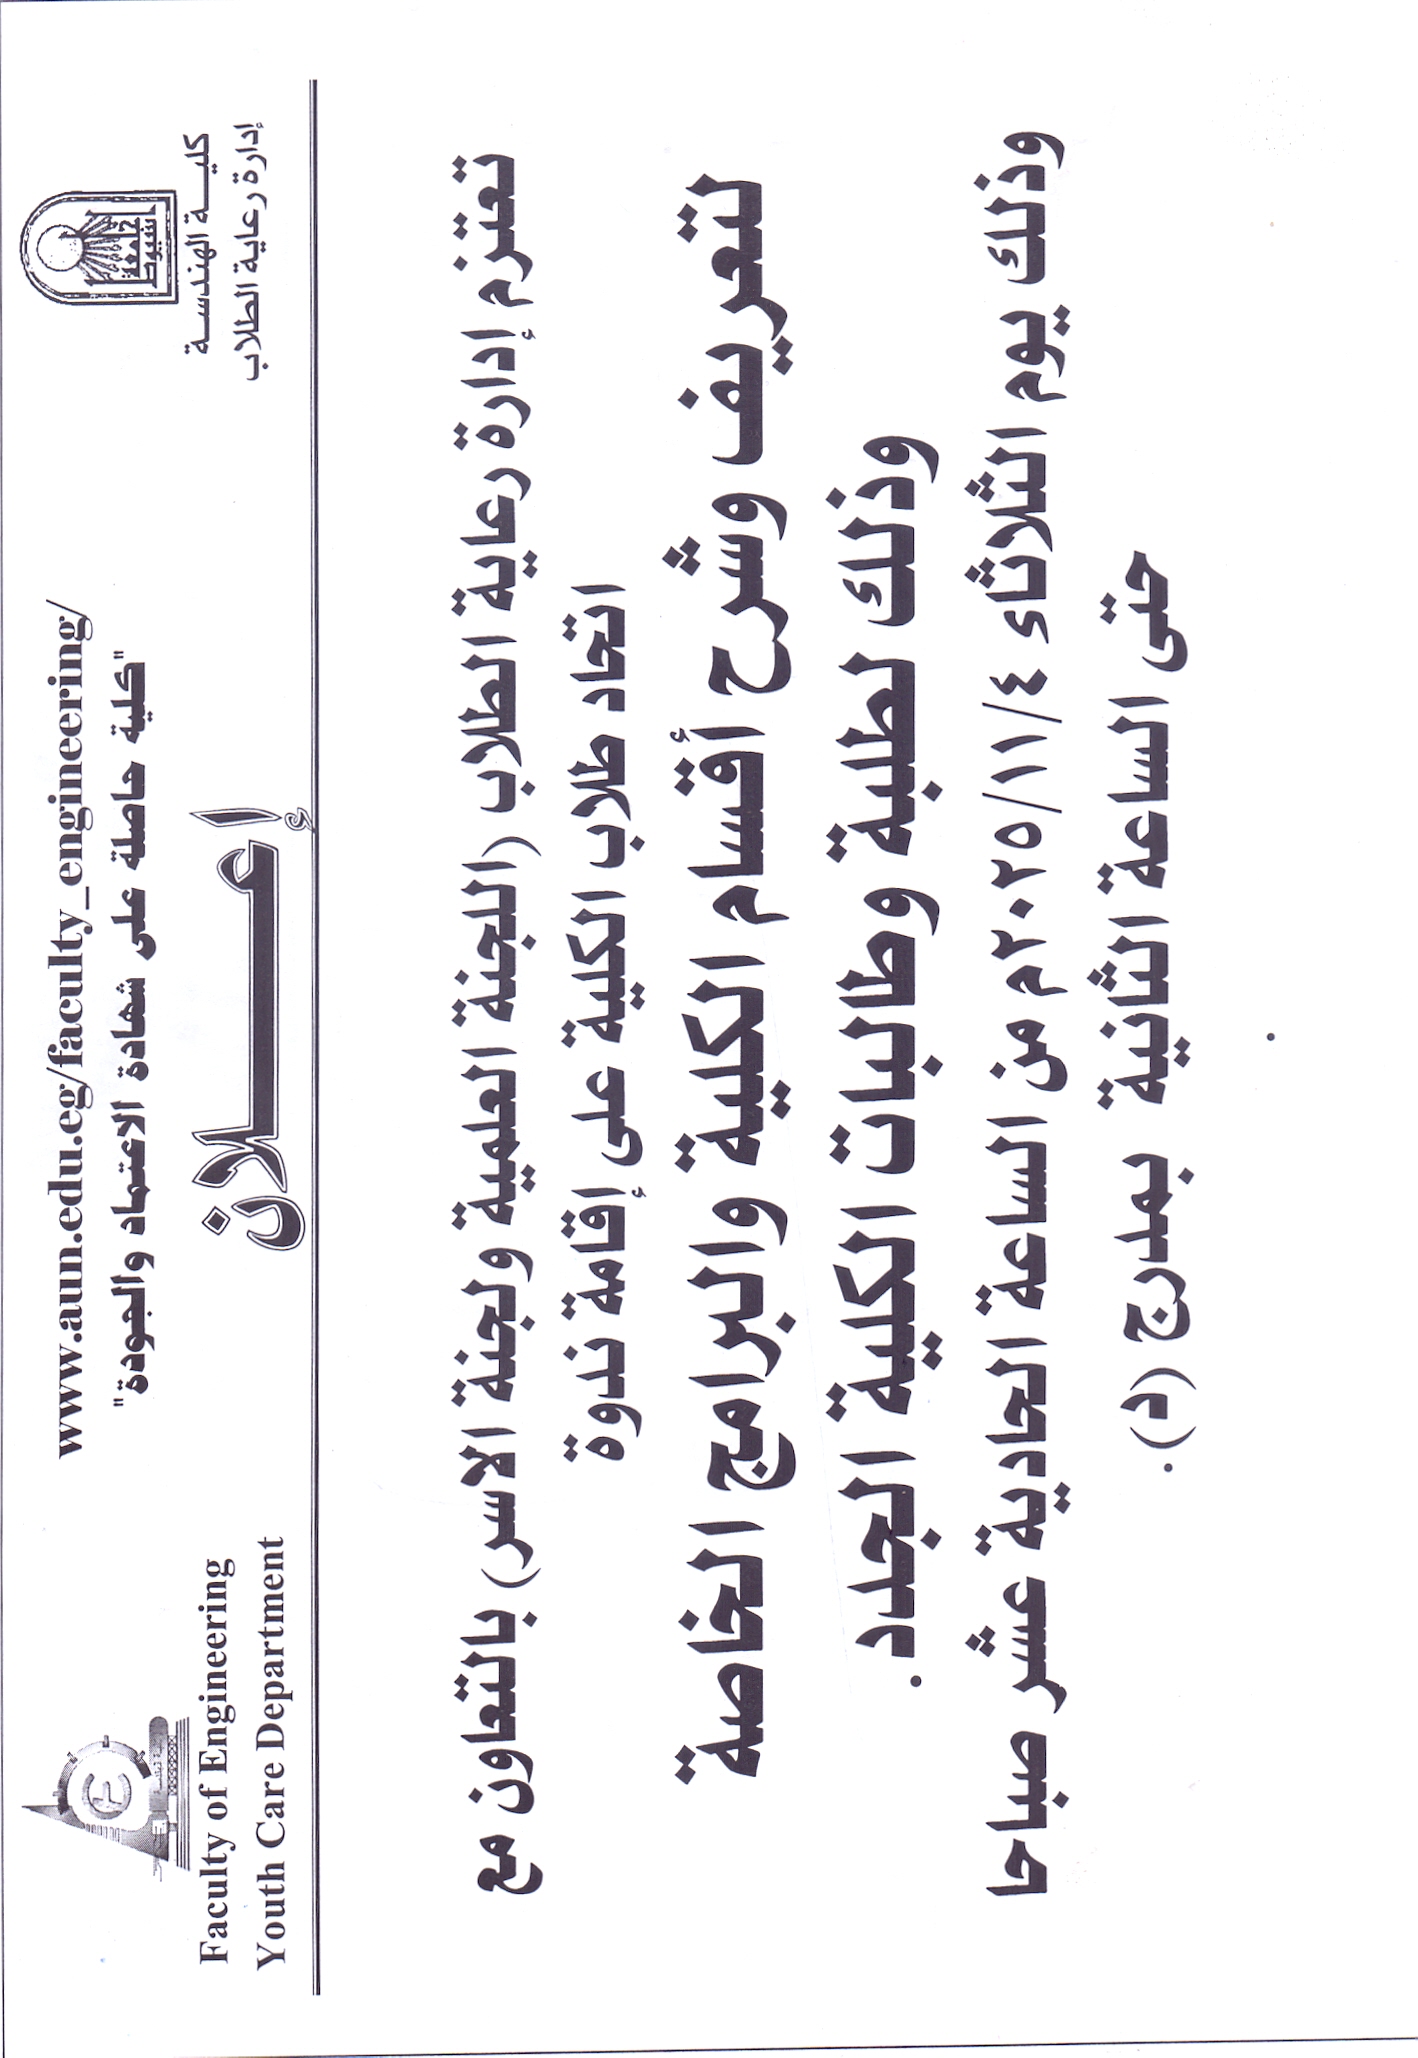 www.aun.edu.eg/faculty_engineering/
"كلية حاصلة على شهادة الاعتماد والجودة"
جامعة
أسيوط
كليـــة الهندســة
إدارة رعاية الطلاب
Faculty of Engineering
Youth Care Department
إعـــلان
تعتزم إدارة رعاية الطلاب (اللجنة العلمية ولجنة الاسر) بالتعاون مع
اتحاد طلاب الكلية على إقامة ندوة
لتعريف وشرح أقسام الكلية والبرامج الخاصة
وذلك لطلبة وطالبات الكلية الجدد.
وذلك يوم الثلاثاء ٢٠٢٥/١١/٤م من الساعة الحادية عشر صباحا
حتى الساعة الثانية بمدرج (د).